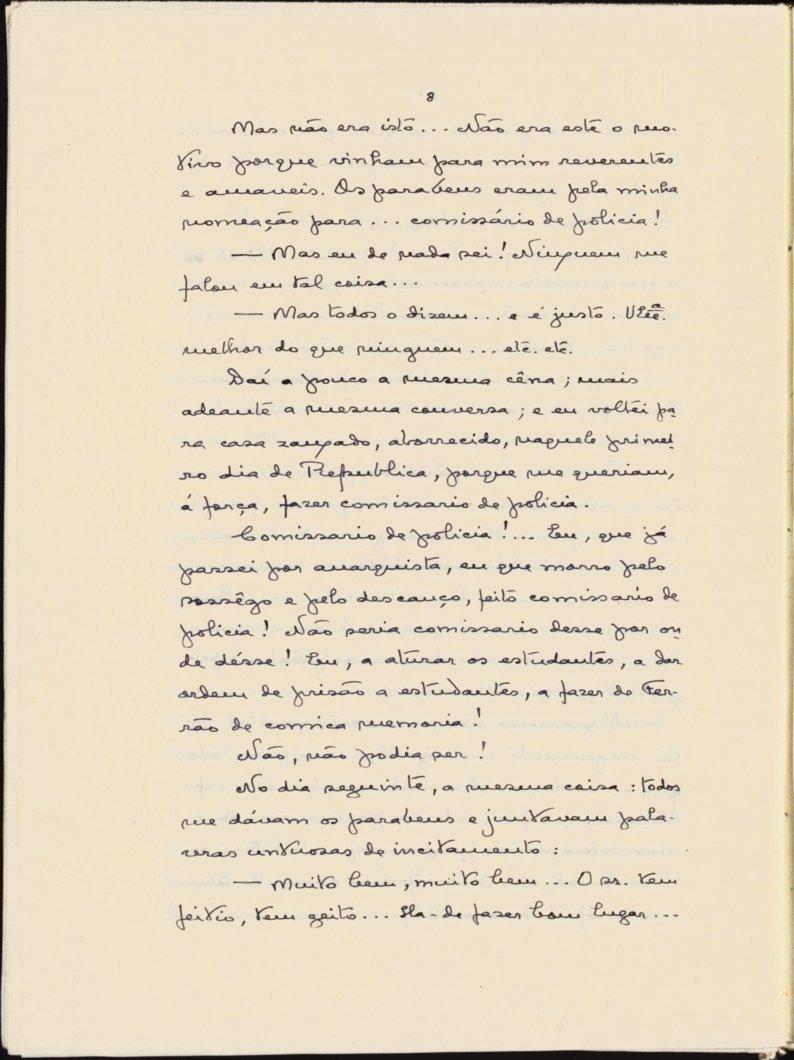 8
Mas não era istó... Não era esté o mo-
tivo porque vinham para mim reverentes
e amaveis. Os parabens eram pela minha
nomeação para... comissário de policia!
— Mas eu de nada sei! Ninguem me
falou em tal coisa...
— Mas todos o dizem... e é justo. V Exª.
melhor do que ninguem... etc. etc.
Daí a pouco a mesma cêna; mais
adeante a mesma conversa; e eu voltei pa-
ra casa zangado, aborrecido, naquele primei-
ro dia de Republica, porque me queriam,
á força, fazer comissario de policia.
Comissario de policia!... Eu, que já
passei por anarquista, eu que morro pelo
sossêgo e pelo descanço, feito comissario de
policia! Não seria comissario desse por on-
de désse! Eu, a aturar os estudantes, a dar
ordem de prisão a estudantes, a fazer de Fer-
rão de comica memoria!
Não, não podia ser!
No dia seguinte, a mesma coisa: todos
me dávam os parabens e juntavam pala-
vras untuosas de incitamento:
— Muito bem, muito bem... O sr. tem
feitio, tem geito... Ha-de fazer bom lugar...